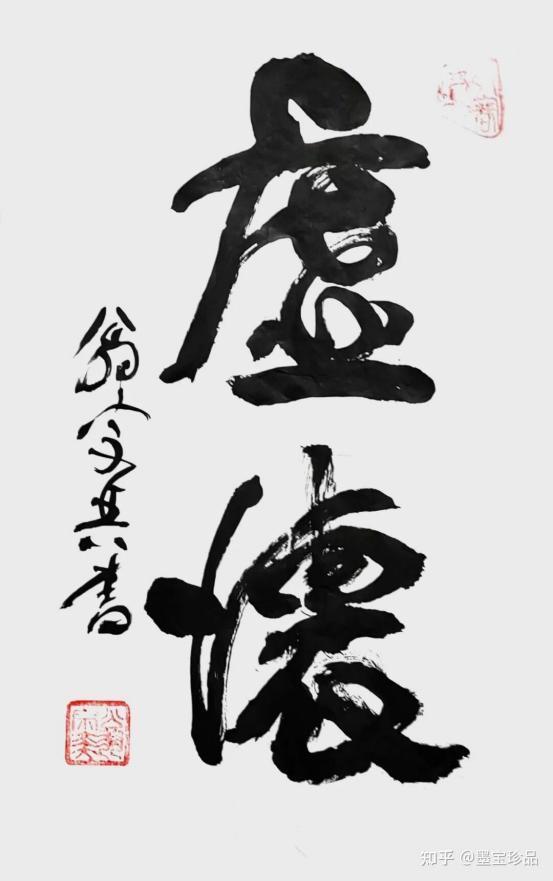 虚懷
翁文其書
知乎 @墨宝珍品